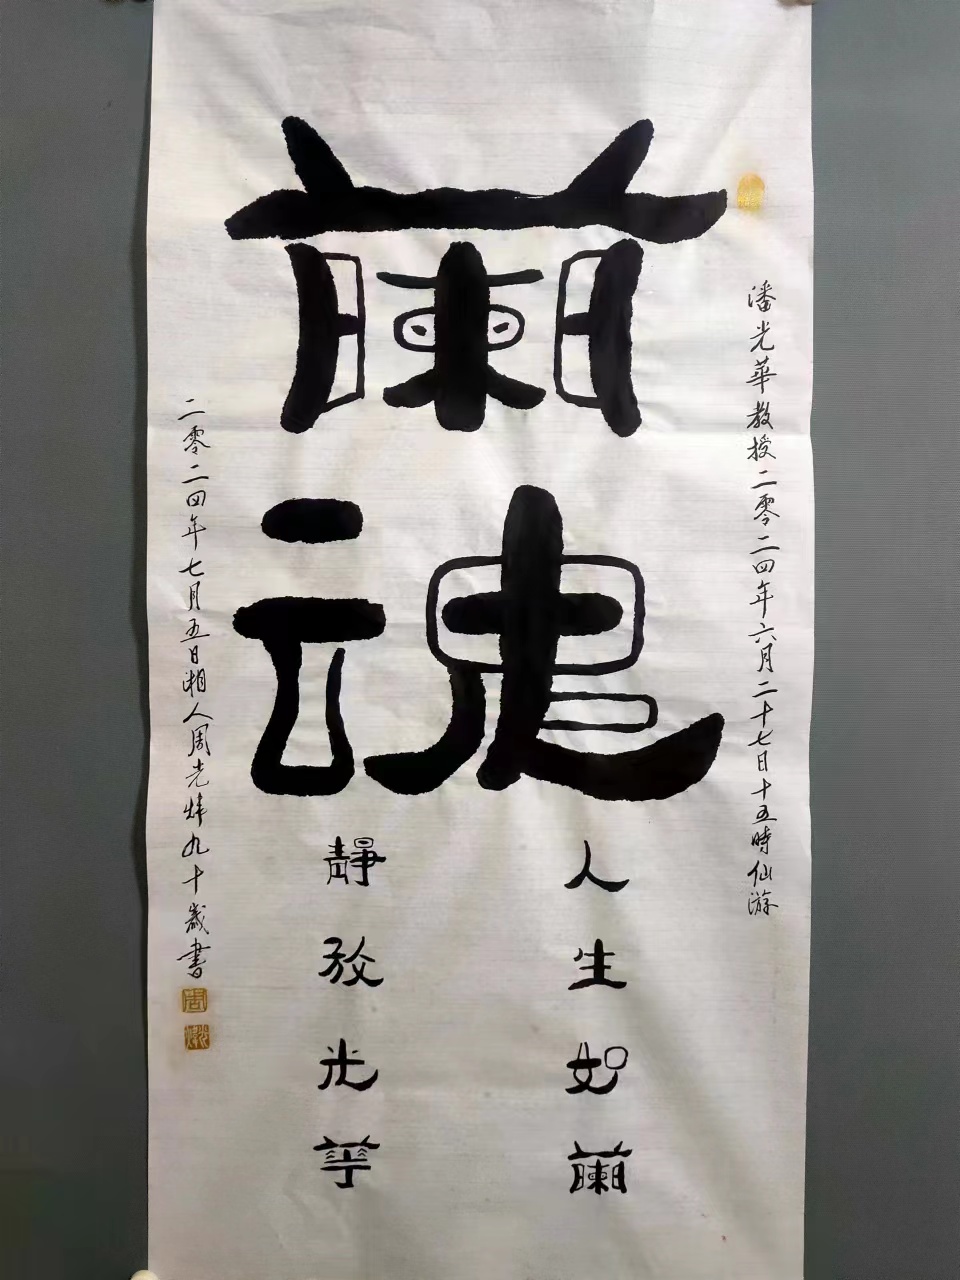 蘭魂
潘光華教授二零二四年六月二十七日十五時仙游
人生如蘭
靜放光華
二零二四年七月五日湘人周光炜九十歲書